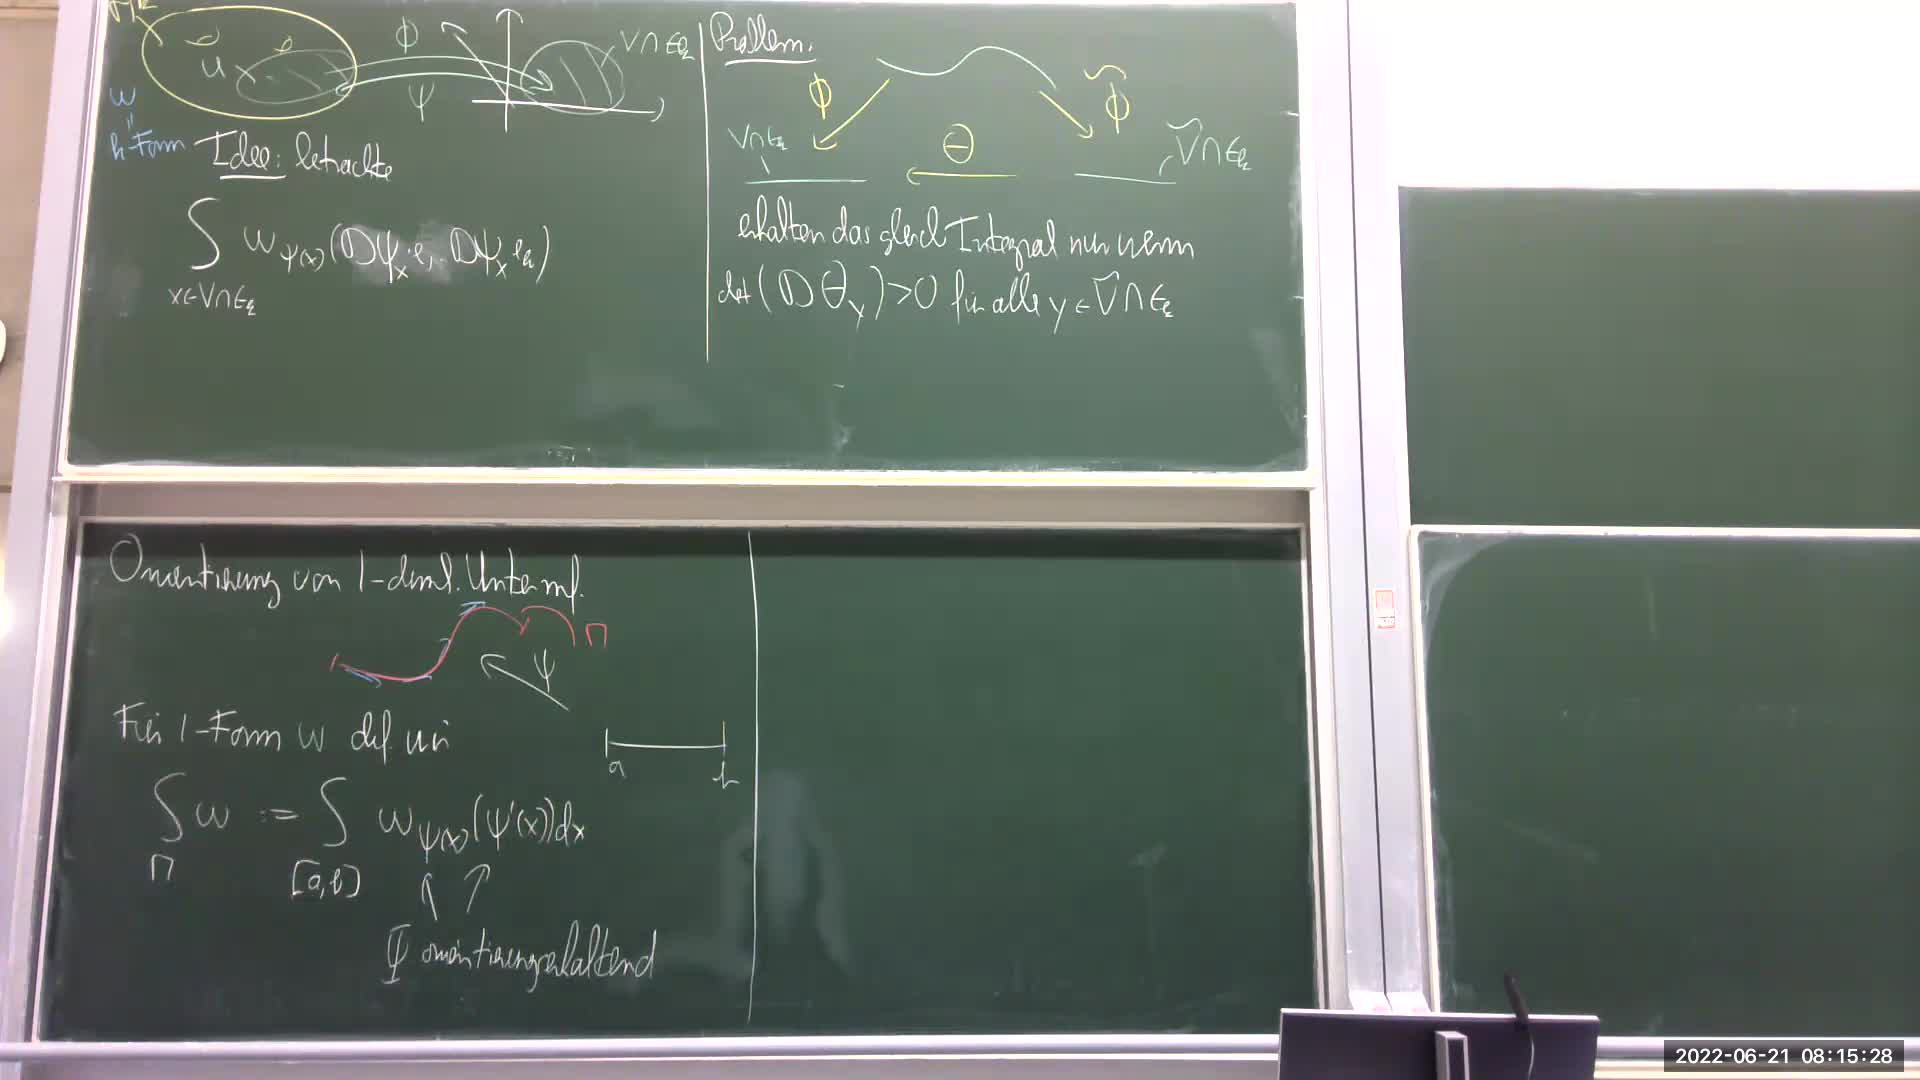 U
Φ
ψ
V∩E_k
ω
=
k-Form
Idee: betrachte
∫ ω_ψ(x) (Dψ_x·e, .. Dψ_x·e_k)
x∈V∩E_k
Problem:
Φ
Φ̃
V∩E_k
Θ
Ṽ∩E_k
erhalten das gleich Integral nur wenn
det(DΘ_y)>0 für alle y∈Ṽ∩E_k
Orientierung von 1-diml. Untermf.
M
ψ
Für 1-Form ω def. wir
a
b
∫ ω := ∫ ω_ψ(x) (ψ'(x))dx
M [a,b]
Ψ orientierungserhaltend
2022-06-21 08:15:28